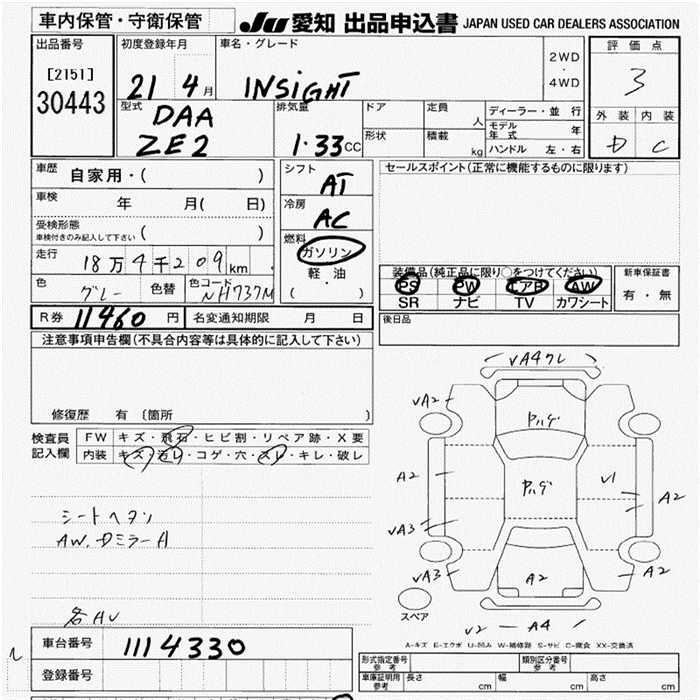 車内保管・守衛保管
JU 愛知 出品申込書 JAPAN USED CAR DEALERS ASSOCIATION
出品番号
[2151]
30443
初度登録年月
21 4月
車名・グレード
INSIGHT
2WD
・
4WD
評価点
3
外装 内装
D C
型式
DAA
ZE2
排気量
1.33cc
ドア
定員
人
形状
積載
kg
ディーラー・並行
モデル年式 年
ハンドル 左・右
車歴
自家用・( )
車検
年 月( 日)
受検形態
車検付きのみ記入して下さい ( )
走行
18万4千209km
色
グレー
色替
色コード
NH737M
シフト
AT
冷房
AC
燃料
ガソリン
・
軽油
( )
セールスポイント(正常に機能するものに限ります)
装備品(純正品に限り○をつけてください)
PS PW エアB AW
SR ナビ TV カワシート
新車保証書
有・無
後日品
R券 11460円
名変通知期限 月 日
注意事項申告欄(不具合内容等は具体的に記入して下さい)
修復歴 有〔箇所 〕
検査員
記入欄
FW キズ・飛石・ヒビ割・リペア跡・X要
内装 キズ・汚レ・コゲ・穴・スレ・キレ・破レ
シートヘタリ
AW.DミラーA
各AU
VA4クレ
VA2
ハゲ
A2
ハゲ
V1
A2
VA3
VA3
A2
A2
スペア
V2
A4
A-キズ E-エクボ U-凹み W-補修跡 S-サビ C-腐食 XX-交換済
車台番号 1114330
登録番号
形式指定番号
参考
類別区分番号
参考
車庫証明用
参考
長さ cm
幅 cm
高さ cm